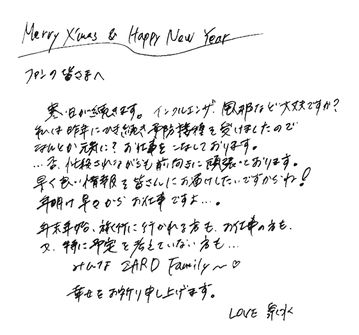 Merry X'mas & Happy New Year
ファンの皆さまへ
寒い日が続きます。インフルエンザ、風邪など大丈夫ですか?
私は昨年にひき続き予防接種を受けましたので
なんとか元気に?お仕事をこなしております。
…否、仕事されながらも前向きに頑張っております。
早く良い情報を皆さんにお届けしたいですからね!
年明け早々からお仕事ですよ…。
年末年始、旅行に行かれる方も、お仕事の方も、
又、特に予定を考えていない方も…
みんな ZARD Family〜♡
幸せをお祈り申し上げます。
LOVE 泉水